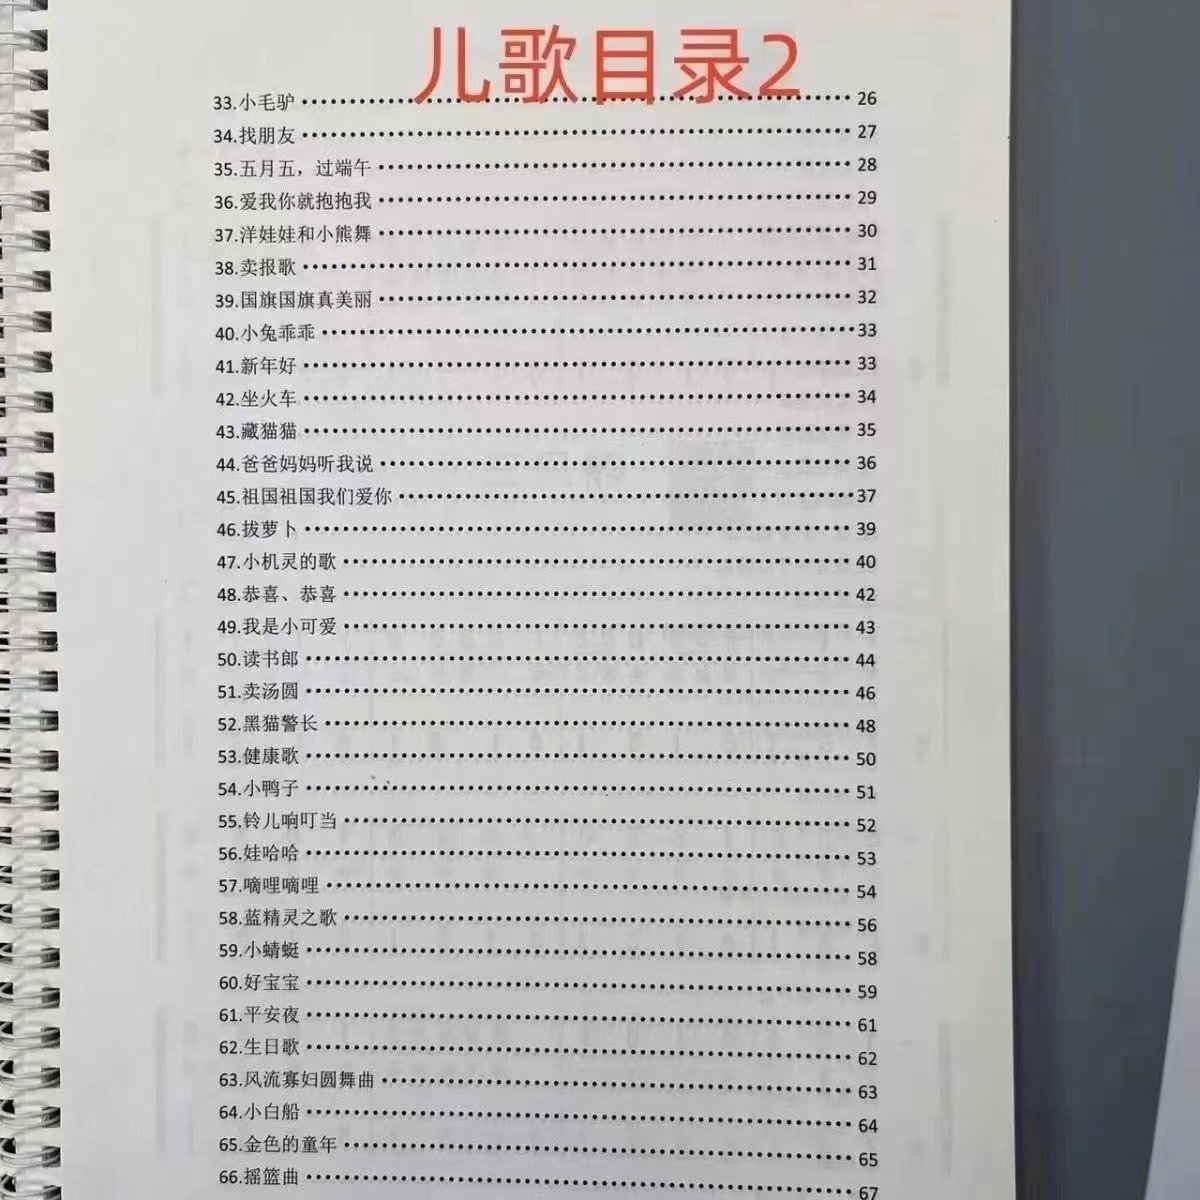 儿歌目录2
33.小毛驴 26
34.找朋友 27
35.五月五，过端午 28
36.爱我你就抱抱我 29
37.洋娃娃和小熊舞 30
38.卖报歌 31
39.国旗国旗真美丽 32
40.小兔乖乖 33
41.新年好 33
42.坐火车 34
43.藏猫猫 35
44.爸爸妈妈听我说 36
45.祖国祖国我们爱你 37
46.拔萝卜 39
47.小机灵的歌 40
48.恭喜、恭喜 42
49.我是小可爱 43
50.读书郎 44
51.卖汤圆 46
52.黑猫警长 48
53.健康歌 50
54.小鸭子 51
55.铃儿响叮当 52
56.娃哈哈 53
57.嘀哩嘀哩 54
58.蓝精灵之歌 56
59.小蜻蜓 58
60.好宝宝 59
61.平安夜 61
62.生日歌 62
63.风流寡妇圆舞曲 63
64.小白船 64
65.金色的童年 65
66.摇篮曲 67